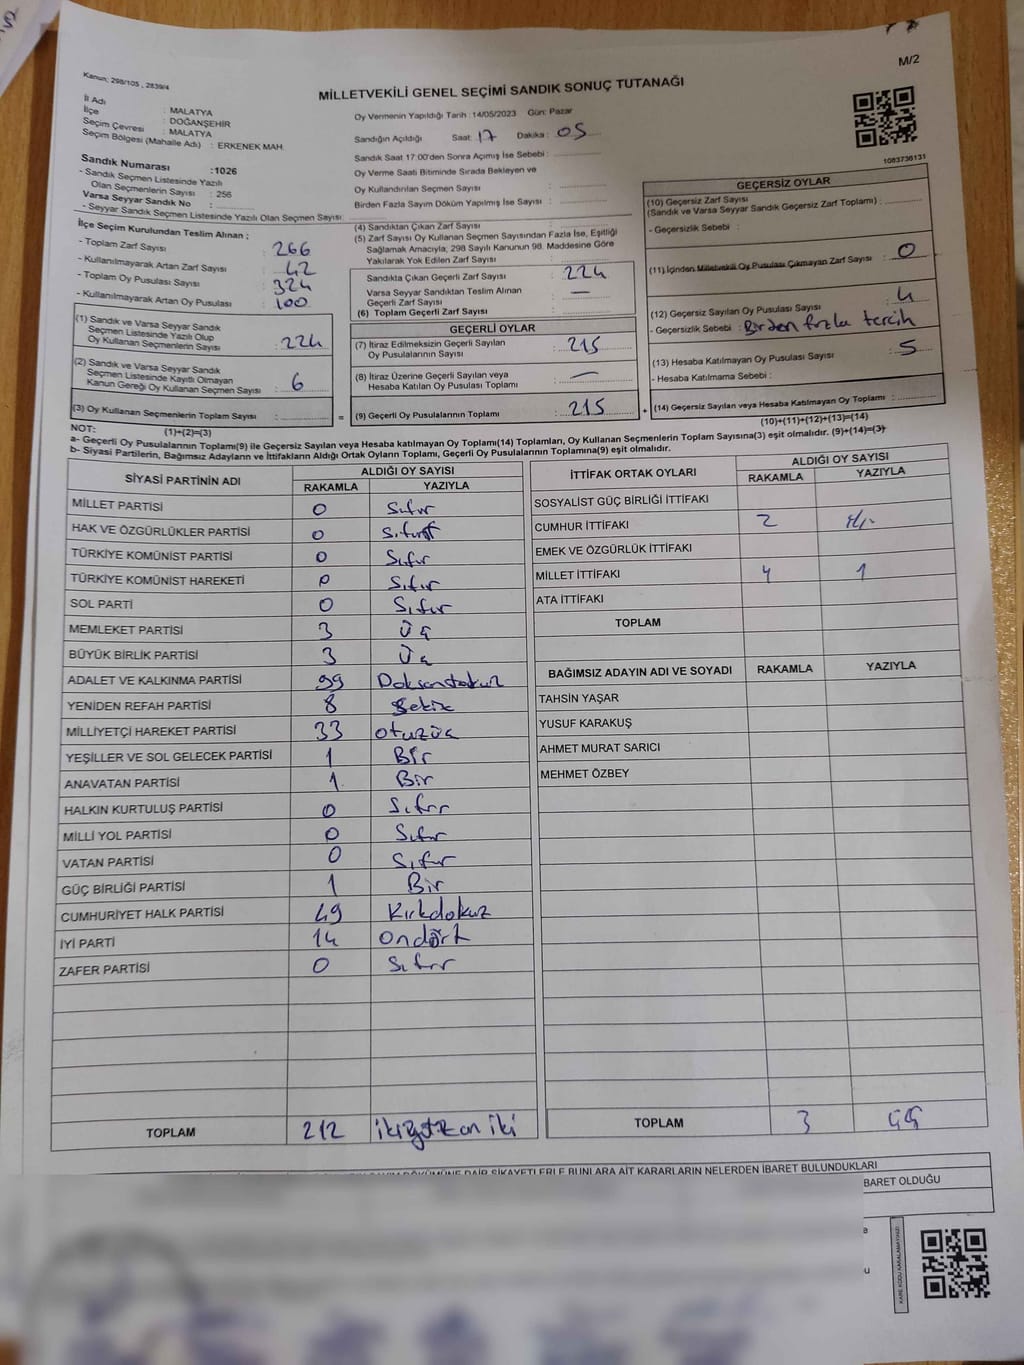 M/2
Kanun; 298/105 , 2839/4
MİLLETVEKİLİ GENEL SEÇİMİ SANDIK SONUÇ TUTANAĞI
İl Adı : MALATYA
İlçe : DOĞANŞEHİR
Seçim Çevresi : MALATYA
Seçim Bölgesi (Mahalle Adı) : ERKENEK MAH.
Sandık Numarası :1026
- Sandık Seçmen Listesinde Yazılı
Olan Seçmenlerin Sayısı : 256
Varsa Seyyar Sandık No :
- Seyyar Sandık Seçmen Listesinde Yazılı Olan Seçmen Sayısı:
Oy Vermenin Yapıldığı Tarih :14/05/2023 Gün: Pazar
Sandığın Açıldığı Saat: 17 Dakika: 05
Sandık Saat 17:00'den Sonra Açımış İse Sebebi :
Oy Verme Saati Bitiminde Sırada Bekleyen ve
Oy Kullandırılan Seçmen Sayısı :
Birden Fazla Sayım Döküm Yapılmış İse Sayısı :
1083736131
İlçe Seçim Kurulundan Teslim Alınan ;
- Toplam Zarf Sayısı : 266
- Kullanılmayarak Artan Zarf Sayısı : 42
- Toplam Oy Pusulası Sayısı : 324
- Kullanılmayarak Artan Oy Pusulası : 100
(1) Sandık ve Varsa Seyyar Sandık
Seçmen Listesinde Yazılı Olup
Oy Kullanan Seçmenlerin Sayısı : 224
(2) Sandık ve Varsa Seyyar Sandık
Seçmen Listesinde Kayıtlı Olmayan
Kanun Gereği Oy Kullanan Seçmen Sayısı : 6
(3) Oy Kullanan Seçmenlerin Toplam Sayısı :
(1)+(2)=(3)
(4) Sandıktan Çıkan Zarf Sayısı :
(5) Zarf Sayısı Oy Kullanan Seçmen Sayısından Fazla İse, Eşitliği
Sağlamak Amacıyla, 298 Sayılı Kanunun 98. Maddesine Göre
Yakılarak Yok Edilen Zarf Sayısı :
Sandıkta Çıkan Geçerli Zarf Sayısı : 224
Varsa Seyyar Sandıktan Teslim Alınan
Geçerli Zarf Sayısı : —
(6) Toplam Geçerli Zarf Sayısı :
GEÇERLİ OYLAR
(7) İtiraz Edilmeksizin Geçerli Sayılan
Oy Pusulalarının Sayısı : 215
(8) İtiraz Üzerine Geçerli Sayılan veya
Hesaba Katılan Oy Pusulası Toplamı : —
= (9) Geçerli Oy Pusulalarının Toplamı : 215 +
GEÇERSİZ OYLAR
(10) Geçersiz Zarf Sayısı
(Sandık ve Varsa Seyyar Sandık Geçersiz Zarf Toplamı) :
- Geçersizlik Sebebi :
(11) İçinden Milletvekili Oy Pusulası Çıkmayan Zarf Sayısı : 0
(12) Geçersiz Sayılan Oy Pusulası Sayısı : 4
- Geçersizlik Sebebi : Birden fazla tercih
(13) Hesaba Katılmayan Oy Pusulası Sayısı : 5
- Hesaba Katılmama Sebebi :
(14) Geçersiz Sayılan veya Hesaba Katılmayan Oy Toplamı :
(10)+(11)+(12)+(13)=(14)
NOT:
a- Geçerli Oy Pusulalarının Toplamı(9) ile Geçersiz Sayılan veya Hesaba katılmayan Oy Toplamı(14) Toplamları, Oy Kullanan Seçmenlerin Toplam Sayısına(3) eşit olmalıdır. (9)+(14)=(3)
b- Siyasi Partilerin, Bağımsız Adayların ve İttifakların Aldığı Ortak Oyların Toplamı, Geçerli Oy Pusulalarının Toplamına(9) eşit olmalıdır.
SİYASİ PARTİNİN ADI ALDIĞI OY SAYISI
RAKAMLA YAZIYLA
MİLLET PARTİSİ 0 Sıfır
HAK VE ÖZGÜRLÜKLER PARTİSİ 0 Sıfır
TÜRKİYE KOMÜNİST PARTİSİ 0 Sıfır
TÜRKİYE KOMÜNİST HAREKETİ 0 Sıfır
SOL PARTİ 0 Sıfır
MEMLEKET PARTİSİ 3 Üç
BÜYÜK BİRLİK PARTİSİ 3 Üç
ADALET VE KALKINMA PARTİSİ 99 Doksandokuz
YENİDEN REFAH PARTİSİ 8 Sekiz
MİLLİYETÇİ HAREKET PARTİSİ 33 otuzüç
YEŞİLLER VE SOL GELECEK PARTİSİ 1 Bir
ANAVATAN PARTİSİ 1 Bir
HALKIN KURTULUŞ PARTİSİ 0 Sıfır
MİLLİ YOL PARTİSİ 0 Sıfır
VATAN PARTİSİ 0 Sıfır
GÜÇ BİRLİĞİ PARTİSİ 1 Bir
CUMHURİYET HALK PARTİSİ 49 Kırkdokuz
İYİ PARTİ 14 Ondört
ZAFER PARTİSİ 0 Sıfır
TOPLAM 212 ikiyüzon iki
İTTİFAK ORTAK OYLARI ALDIĞI OY SAYISI
RAKAMLA YAZIYLA
SOSYALİST GÜÇ BİRLİĞİ İTTİFAKI
CUMHUR İTTİFAKI 2
EMEK VE ÖZGÜRLÜK İTTİFAKI
MİLLET İTTİFAKI 4 1
ATA İTTİFAKI
TOPLAM
BAĞIMSIZ ADAYIN ADI VE SOYADI RAKAMLA YAZIYLA
TAHSİN YAŞAR
YUSUF KARAKUŞ
AHMET MURAT SARICI
MEHMET ÖZBEY
TOPLAM 3 üç
DÖKÜMÜNE DAİR ŞİKAYETLERLE BUNLARA AİT KARARLARIN NELERDEN İBARET BULUNDUKLARI
BARET OLDUĞU